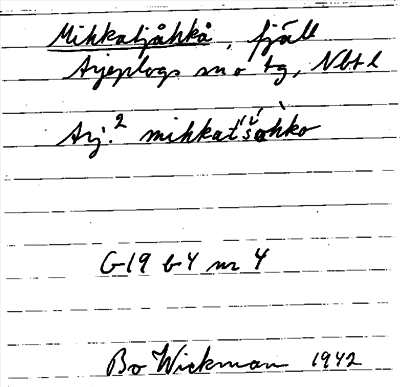 Mihkatjåhkå, fjäll
Arjeplogs sn o tg, Nbtl
Arj.² mihkat́š́ohko
G19 b4 nr 4
Bo Wickman 1942